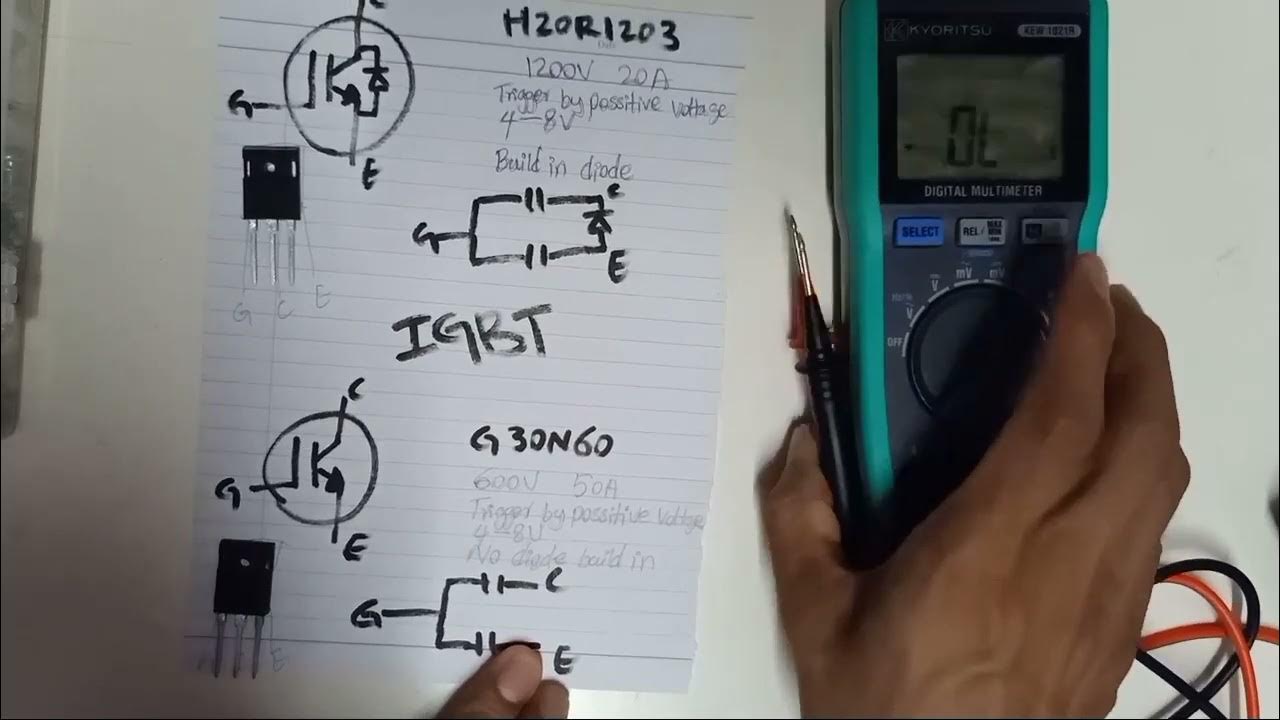 C
H20R1203
1200V 20A
Trigger by possitive voltage
4-8V
G
E
Build in diode
C
G
E
G C E
IGBT
C
G30N60
600V 50A
Trigger by possitive voltage
4-8V
No diode build in
G
E
C
G
E
E
KYORITSU
KEW 1021R
OL
DIGITAL MULTIMETER
SELECT
REL/
MAX
MIN
V
mV
mV
V
OFF